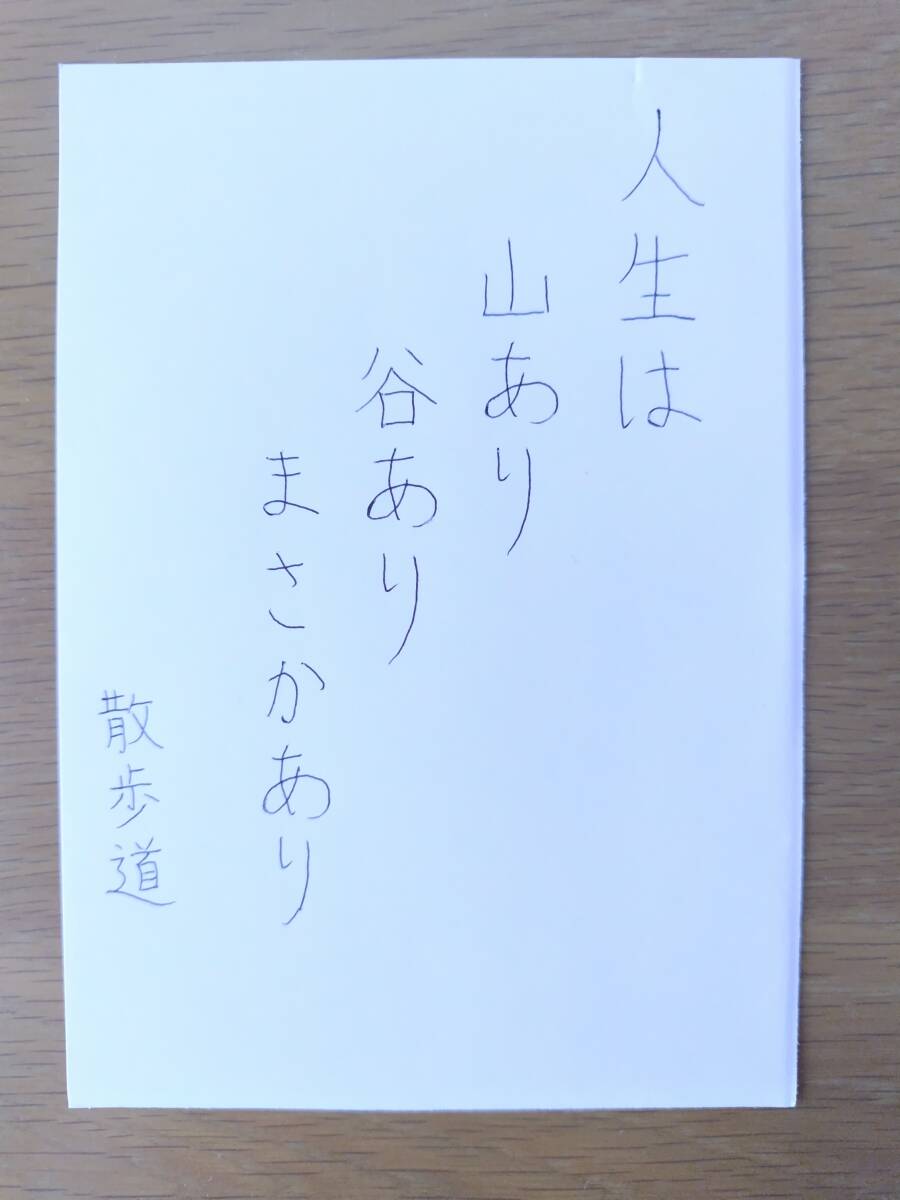 人生は
山あり
谷あり
まさかあり
散歩道